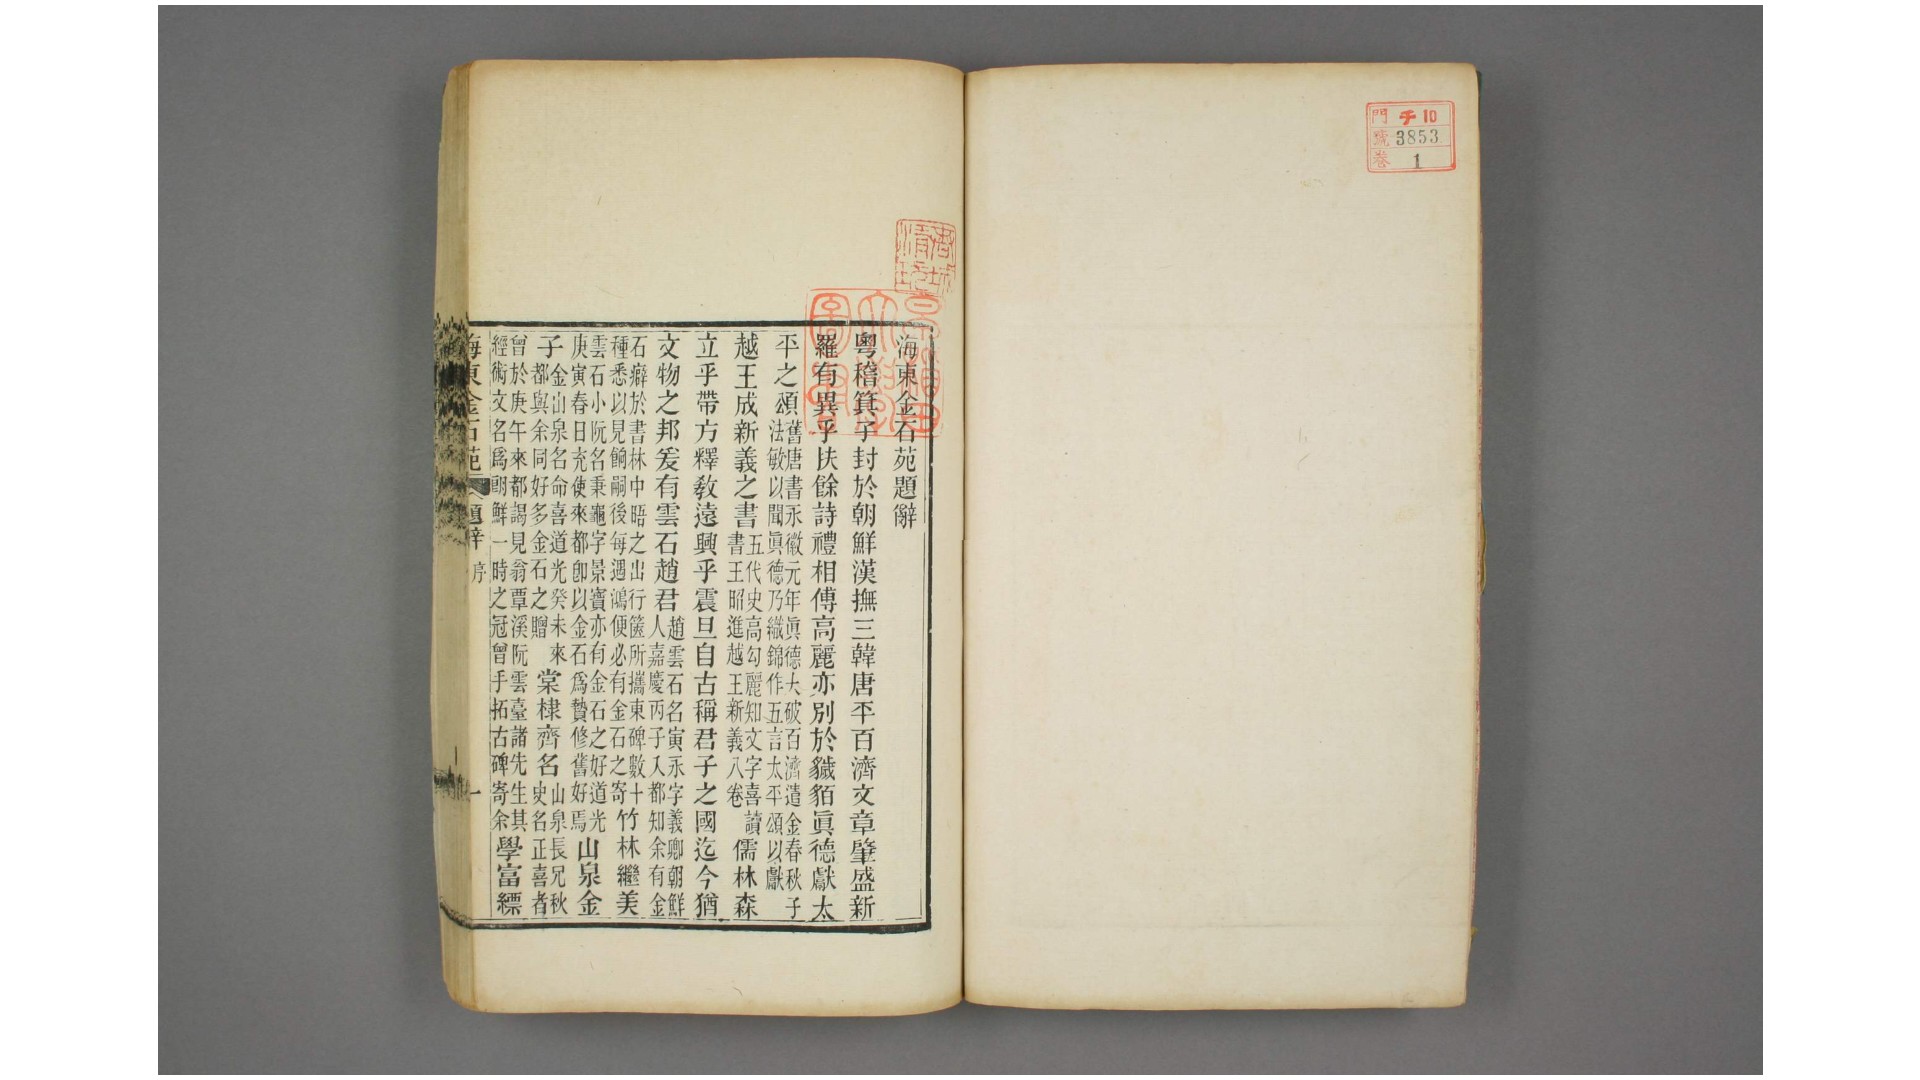 門 チ10
號 3853
卷 1
海東金石苑題辭
粵稽箕子封於朝鮮漢撫三韓唐平百濟文章肇盛新
羅有異乎扶餘詩禮相傳高麗亦別於獩貊眞德獻太
平之頌舊唐書永徽元年眞德大破百濟遣金春秋子
法敏以聞眞德乃織錦作五言太平頌以獻
越王成新義之書五代史高勾麗知文字喜讀
書王昭進越王新義八卷儒林森
立乎帶方釋敎遠興乎震旦自古稱君子之國迄今猶
文物之邦爰有雲石趙君趙雲石名寅永字義卿朝鮮
人嘉慶丙子入都知余有金
石癖於書林中晤之出行篋所攜東碑數十
種悉以見餉嗣後每遇鴻便必有金石之寄竹林繼美
雲石小阮名秉龜字景寶亦有金石之好道光
庚寅春日充使來都卽以金石爲贄修舊好焉山泉金
子金山泉名命喜道光癸未來
都與余同好多金石之贈棠棣齊名山泉長兄秋
史名正喜者
曾於庚午來都謁見翁覃溪阮雲臺諸先生其
經術文名爲朝鮮一時之冠曾手拓古碑寄余學富縹
海東金石苑 題辭 序 一